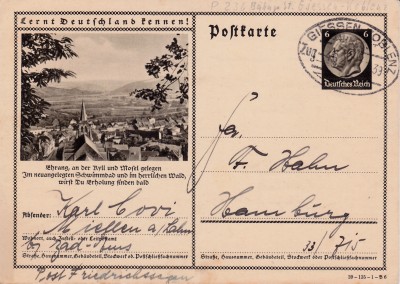 Lernt Deutschland kennen!
Postkarte
GIESSEN
6 6
Deutsches Reich
Ehrang, an der Kyll und Mosel gelegen
Im neuangelegten Schwimmbad und im herrlichen Wald,
wirst Du Erholung finden bald
Absender:
Karl Covi
Miellen a/Lahn
Wohnort, auch Zustell- oder Leitpostamt
b/ Bad-Ems
Straße, Hausnummer, Gebäudeteil, Stockwerk oder Postschließfachnummer
Post Friedrichssegen
Fa.
F. Hahn
Hamburg
33/ 715
Straße, Hausnummer, Gebäudeteil, Stockwerk oder Postschließfachnummer